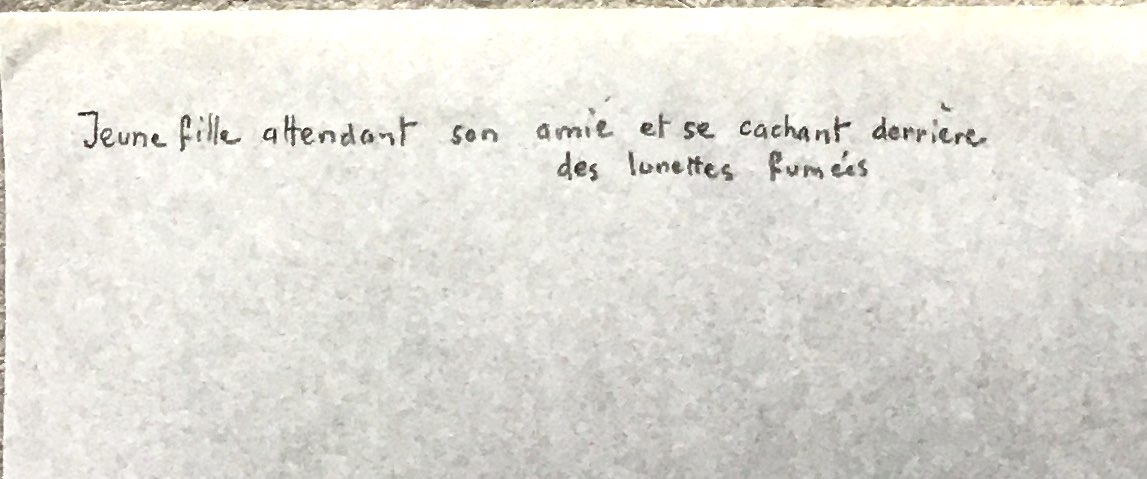 Jeune fille attendant son amie et se cachant derrière
des lunettes fumées